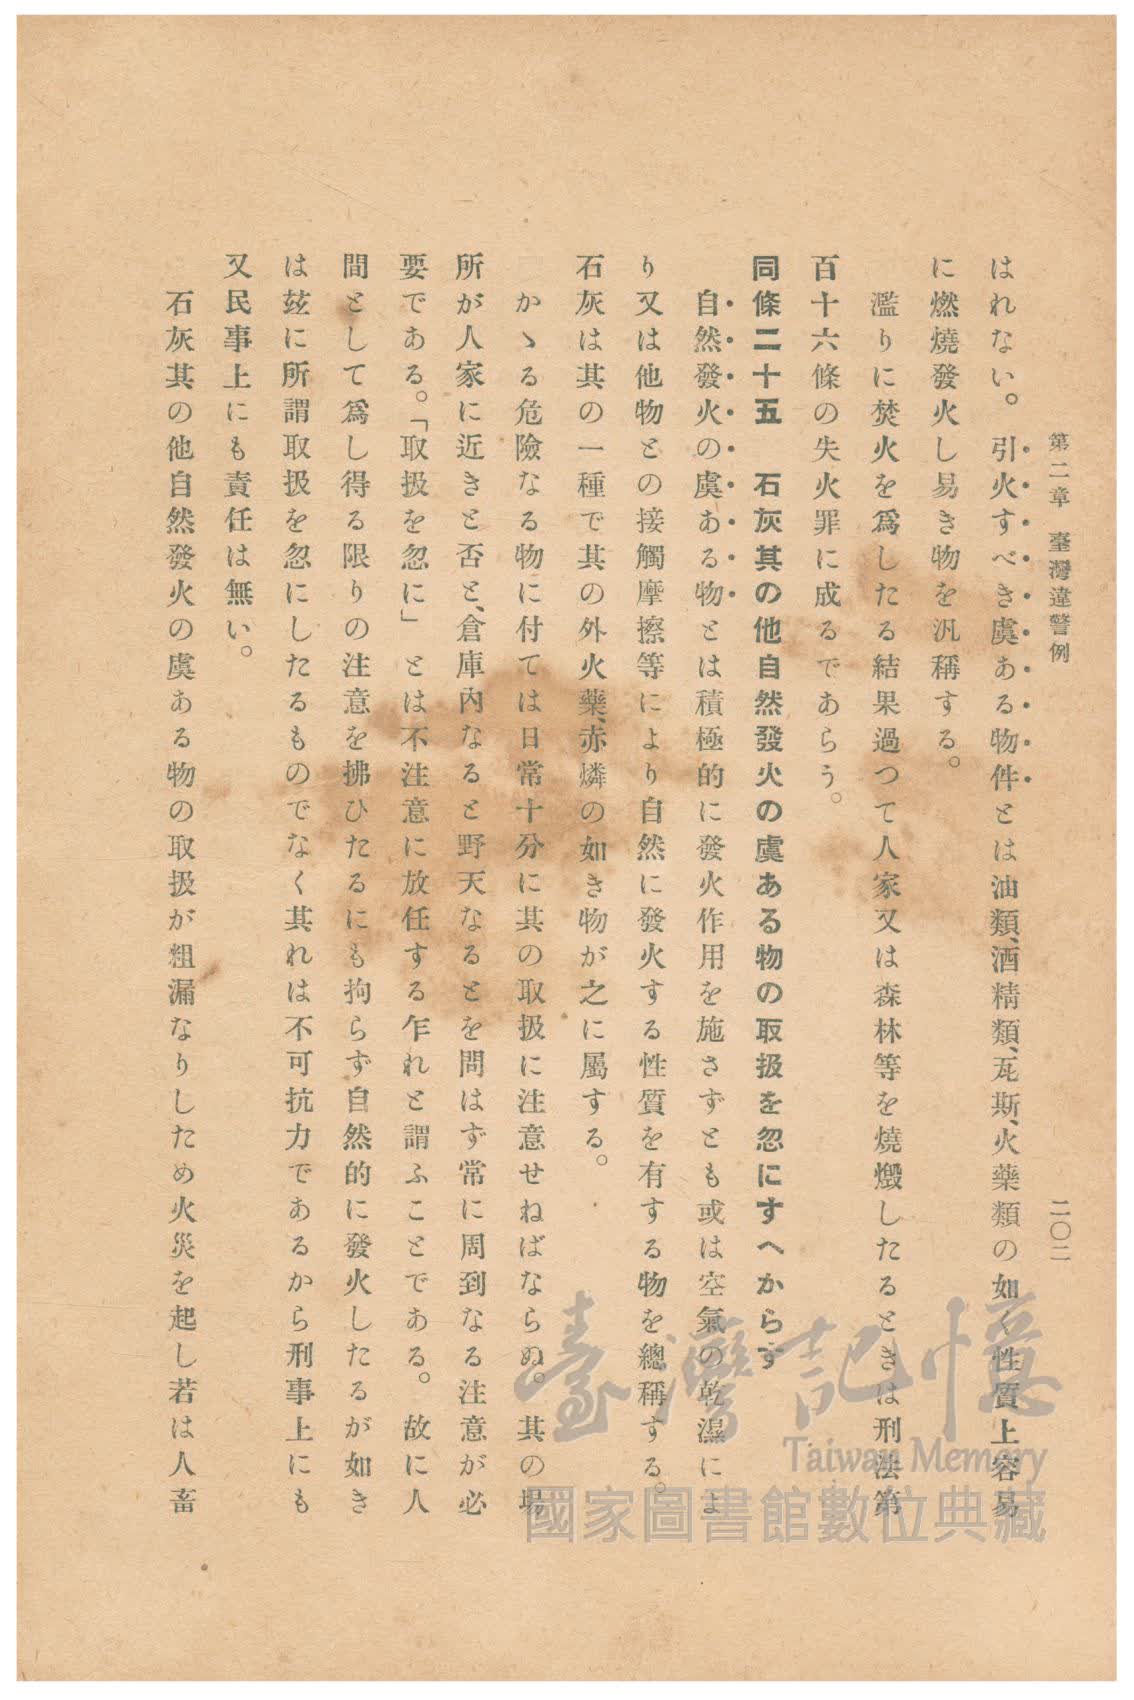 第二章　臺灣違警例　二〇二
はれない。引火すべき虞ある物件とは油類、酒精類、瓦斯、火藥類の如く性質上容易
に燃燒發火し易き物を汎稱する。
濫りに焚火を爲したる結果過つて人家又は森林等を燒燬したるときは刑法第
百十六條の失火罪に成るであらう。
同條二十五　石灰其の他自然發火の虞ある物の取扱を忽にすへからす
自然發火の虞ある物とは積極的に發火作用を施さずとも或は空氣の乾濕によ
り又は他物との接觸摩擦等により自然に發火する性質を有する物を總稱する。
石灰は其の一種で其の外火藥、赤燐の如き物が之に屬する。
かゝる危險なる物に付ては日常十分に其の取扱に注意せねばならぬ。其の場
所が人家に近きと否と、倉庫內なると野天なるとを問はず常に周到なる注意が必
要である。「取扱を忽に」とは不注意に放任する乍れと謂ふことである。故に人
間として爲し得る限りの注意を拂ひたるにも拘らず自然的に發火したるが如き
は玆に所謂取扱を忽にしたるものでなく其れは不可抗力であるから刑事上にも
又民事上にも責任は無い。
石灰其の他自然發火の虞ある物の取扱が粗漏なりしため火災を起し若は人畜
臺灣記憶
Taiwan Memory
國家圖書館數位典藏